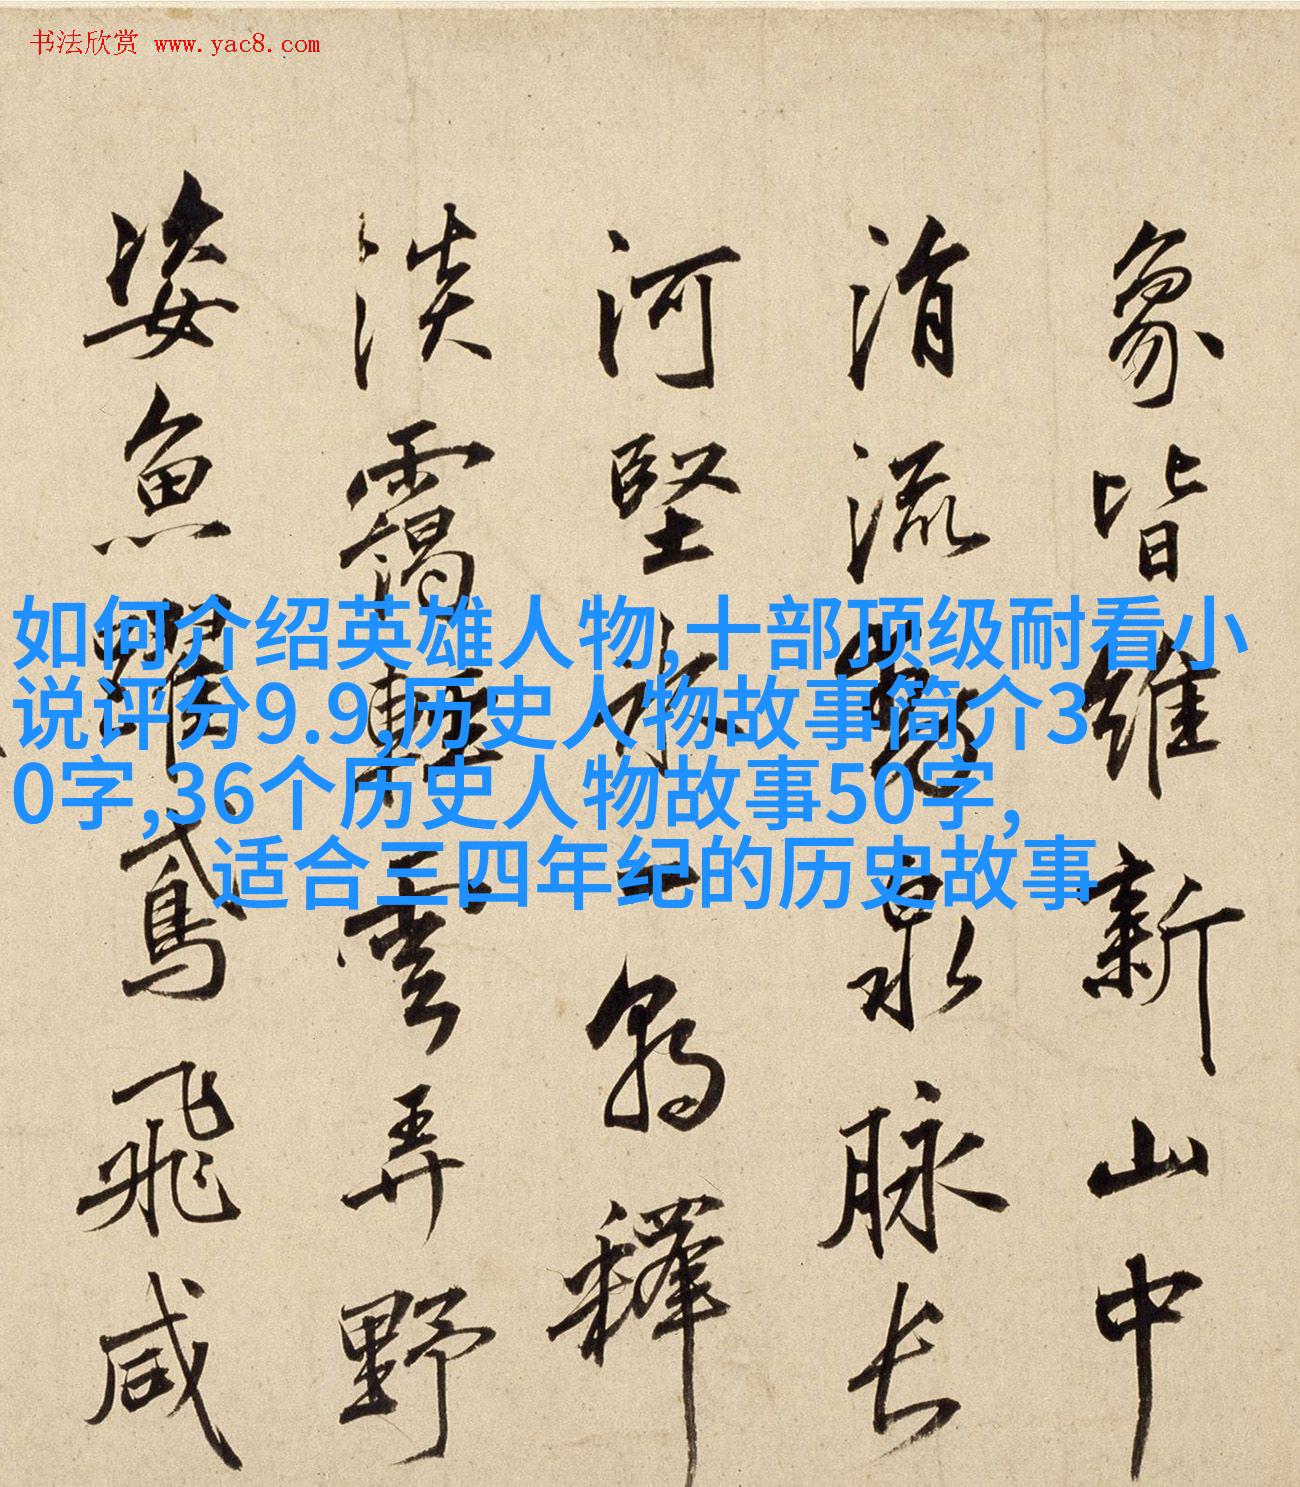 书法欣赏 www.yac8.com
如何介绍英雄人物,十部顶级耐看小
说评分9.9,历史人物故事简介3
0字,36个历史人物故事50字,
适合三四年纪的历史故事
象皆维新山中
涓流泉脉长
河坚冰
釋
淡靄輕雲弄野
姿魚躍鳶飛咸